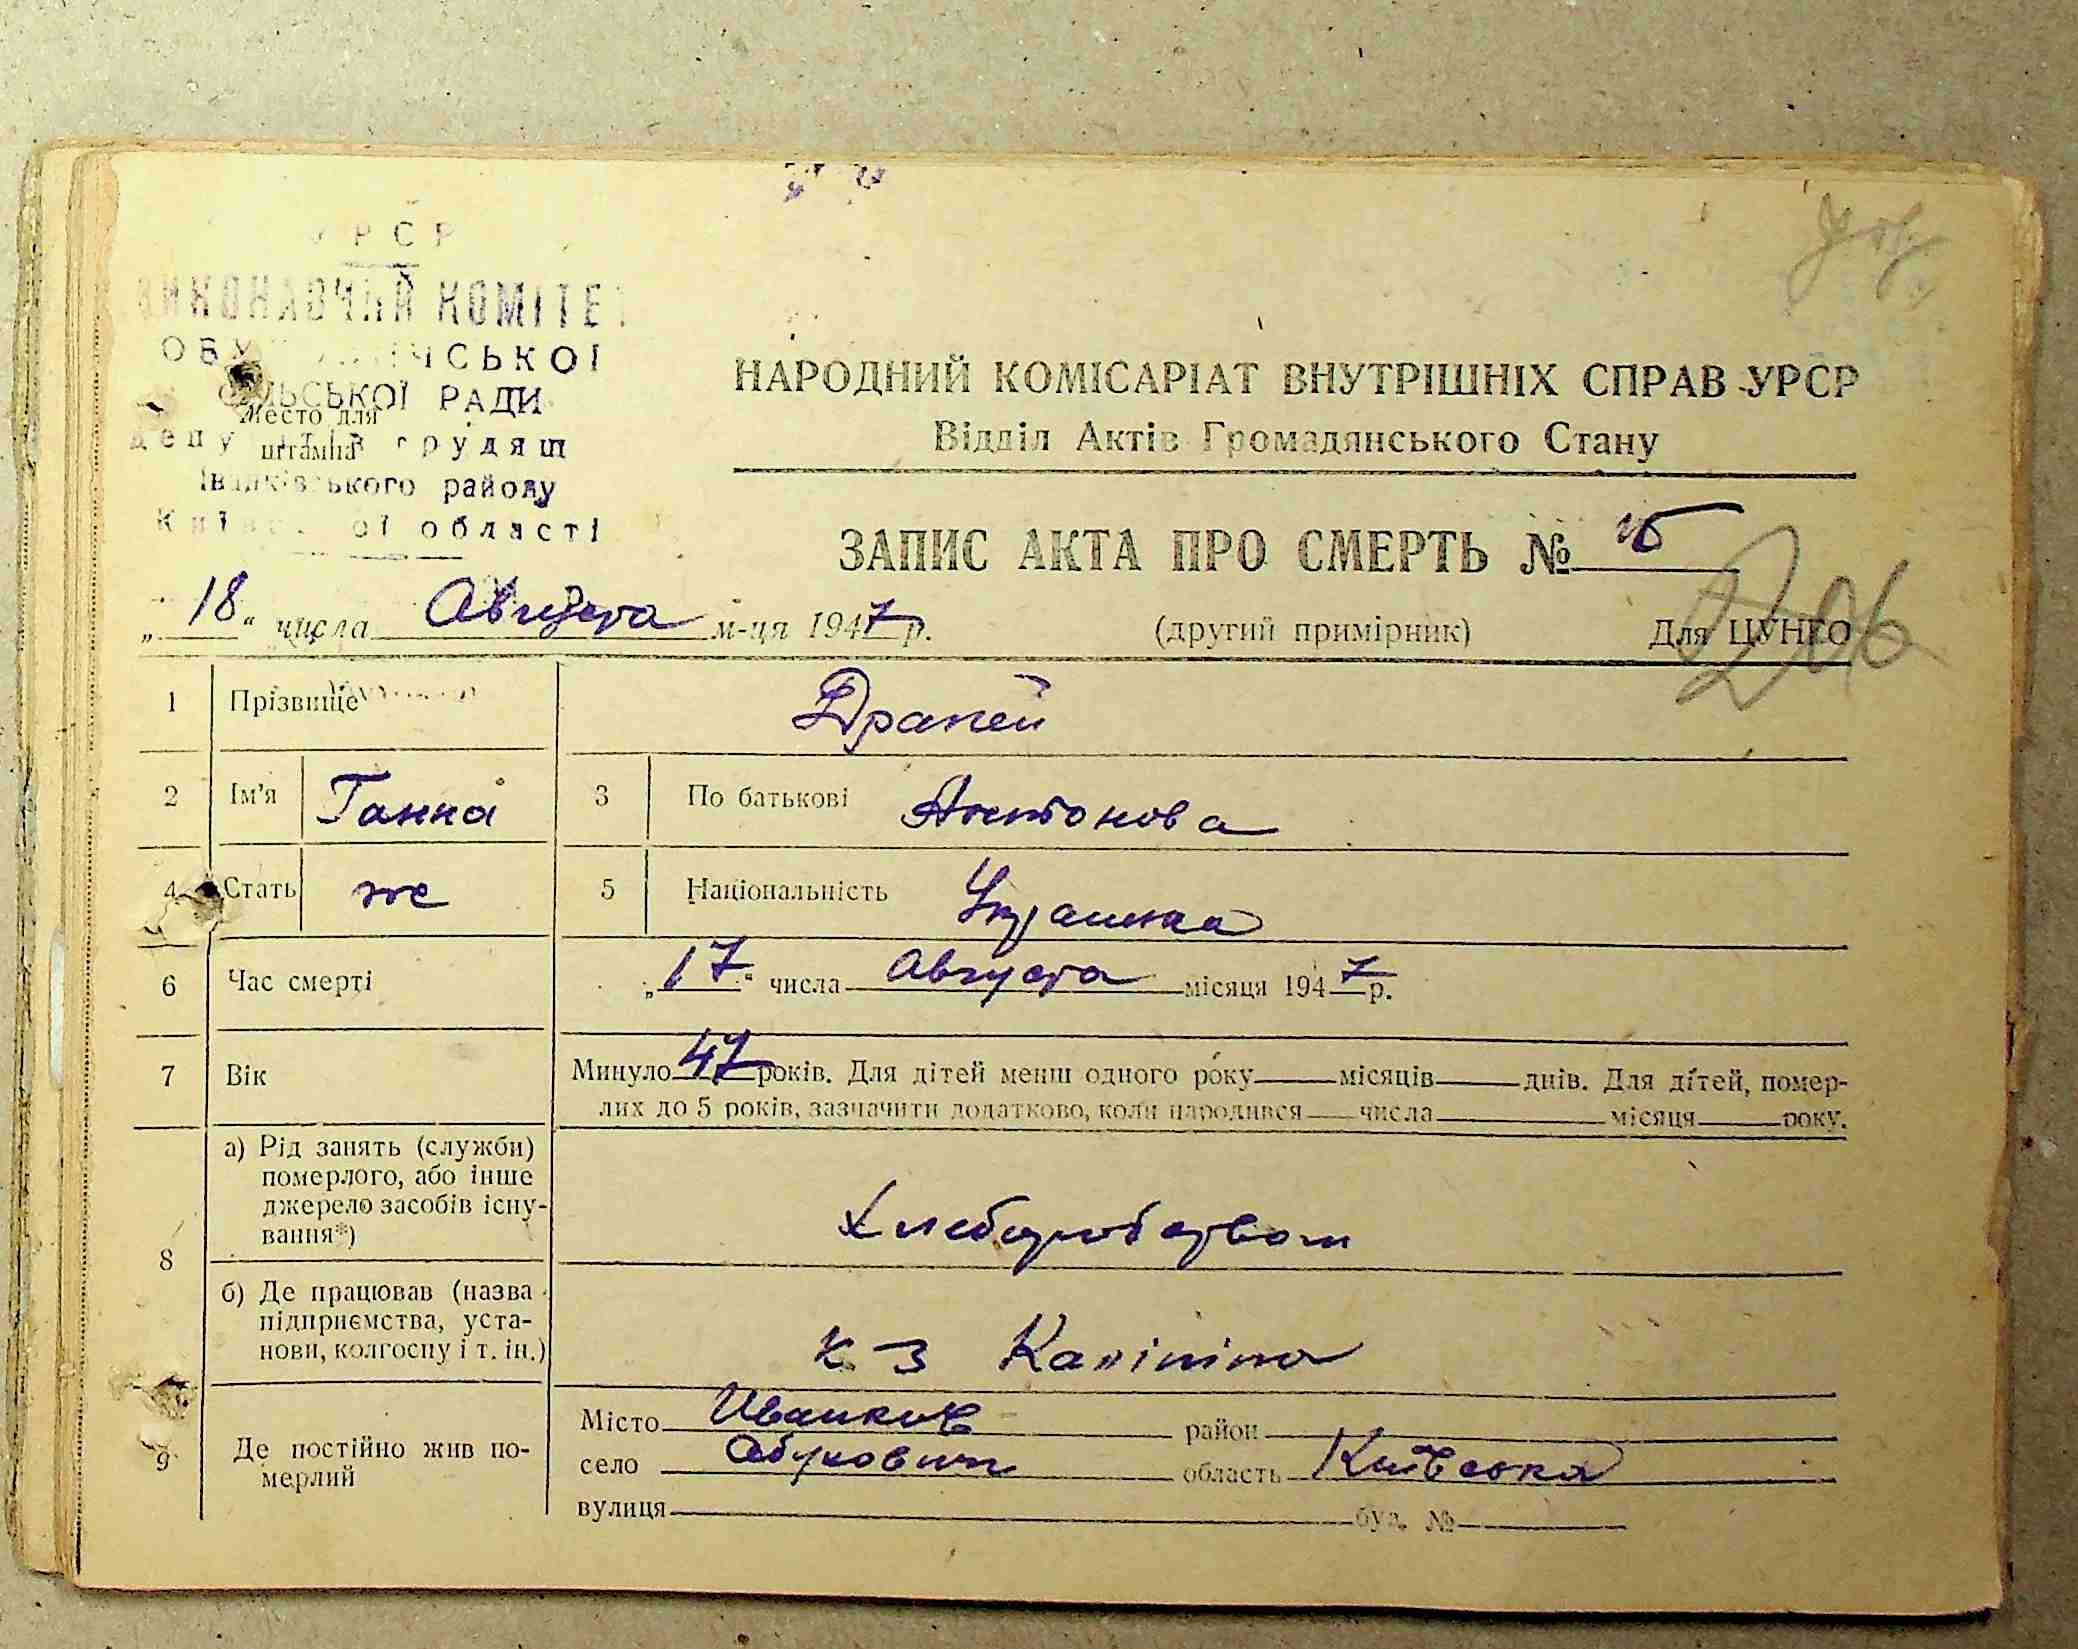 УРСР
ВИКОНАВЧИЙ КОМІТЕ
СЬКОЇ
СІЛЬСЬКОЇ РАДИ
Место для
штампа
депутатів трудящ
Іванківського району
Київської області
НАРОДНИЙ КОМІСАРІАТ ВНУТРІШНІХ СПРАВ УРСР
Відділ Актів Громадянського Стану
ЗАПИС АКТА ПРО СМЕРТЬ №
206
„18“ числа Августа м-ця 1947 р. (другий примірник) Для ЦУНГО
1 Прізвище Драпей
2 Ім'я Ганна 3 По батькові Антонова
4 Стать же 5 Національність Украинка
6 Час смерті „17“ числа Августа місяця 1947 р.
7 Вік Минуло 47 років. Для дітей менш одного року місяців днів. Для дітей, помер-
лих до 5 років, зазначити додатково, коли народився числа місяця року.
8 а) Рід занять (служби)
померлого, або інше
джерело засобів існу-
вання*)
Хлеборобством
б) Де працював (назва
підприємства, уста-
нови, колгоспу і т. ін.)
к-з Калініна
9 Де постійно жив по-
мерлий
Місто Иванков район
село Обуховичи область Київська
вулиця буд. №